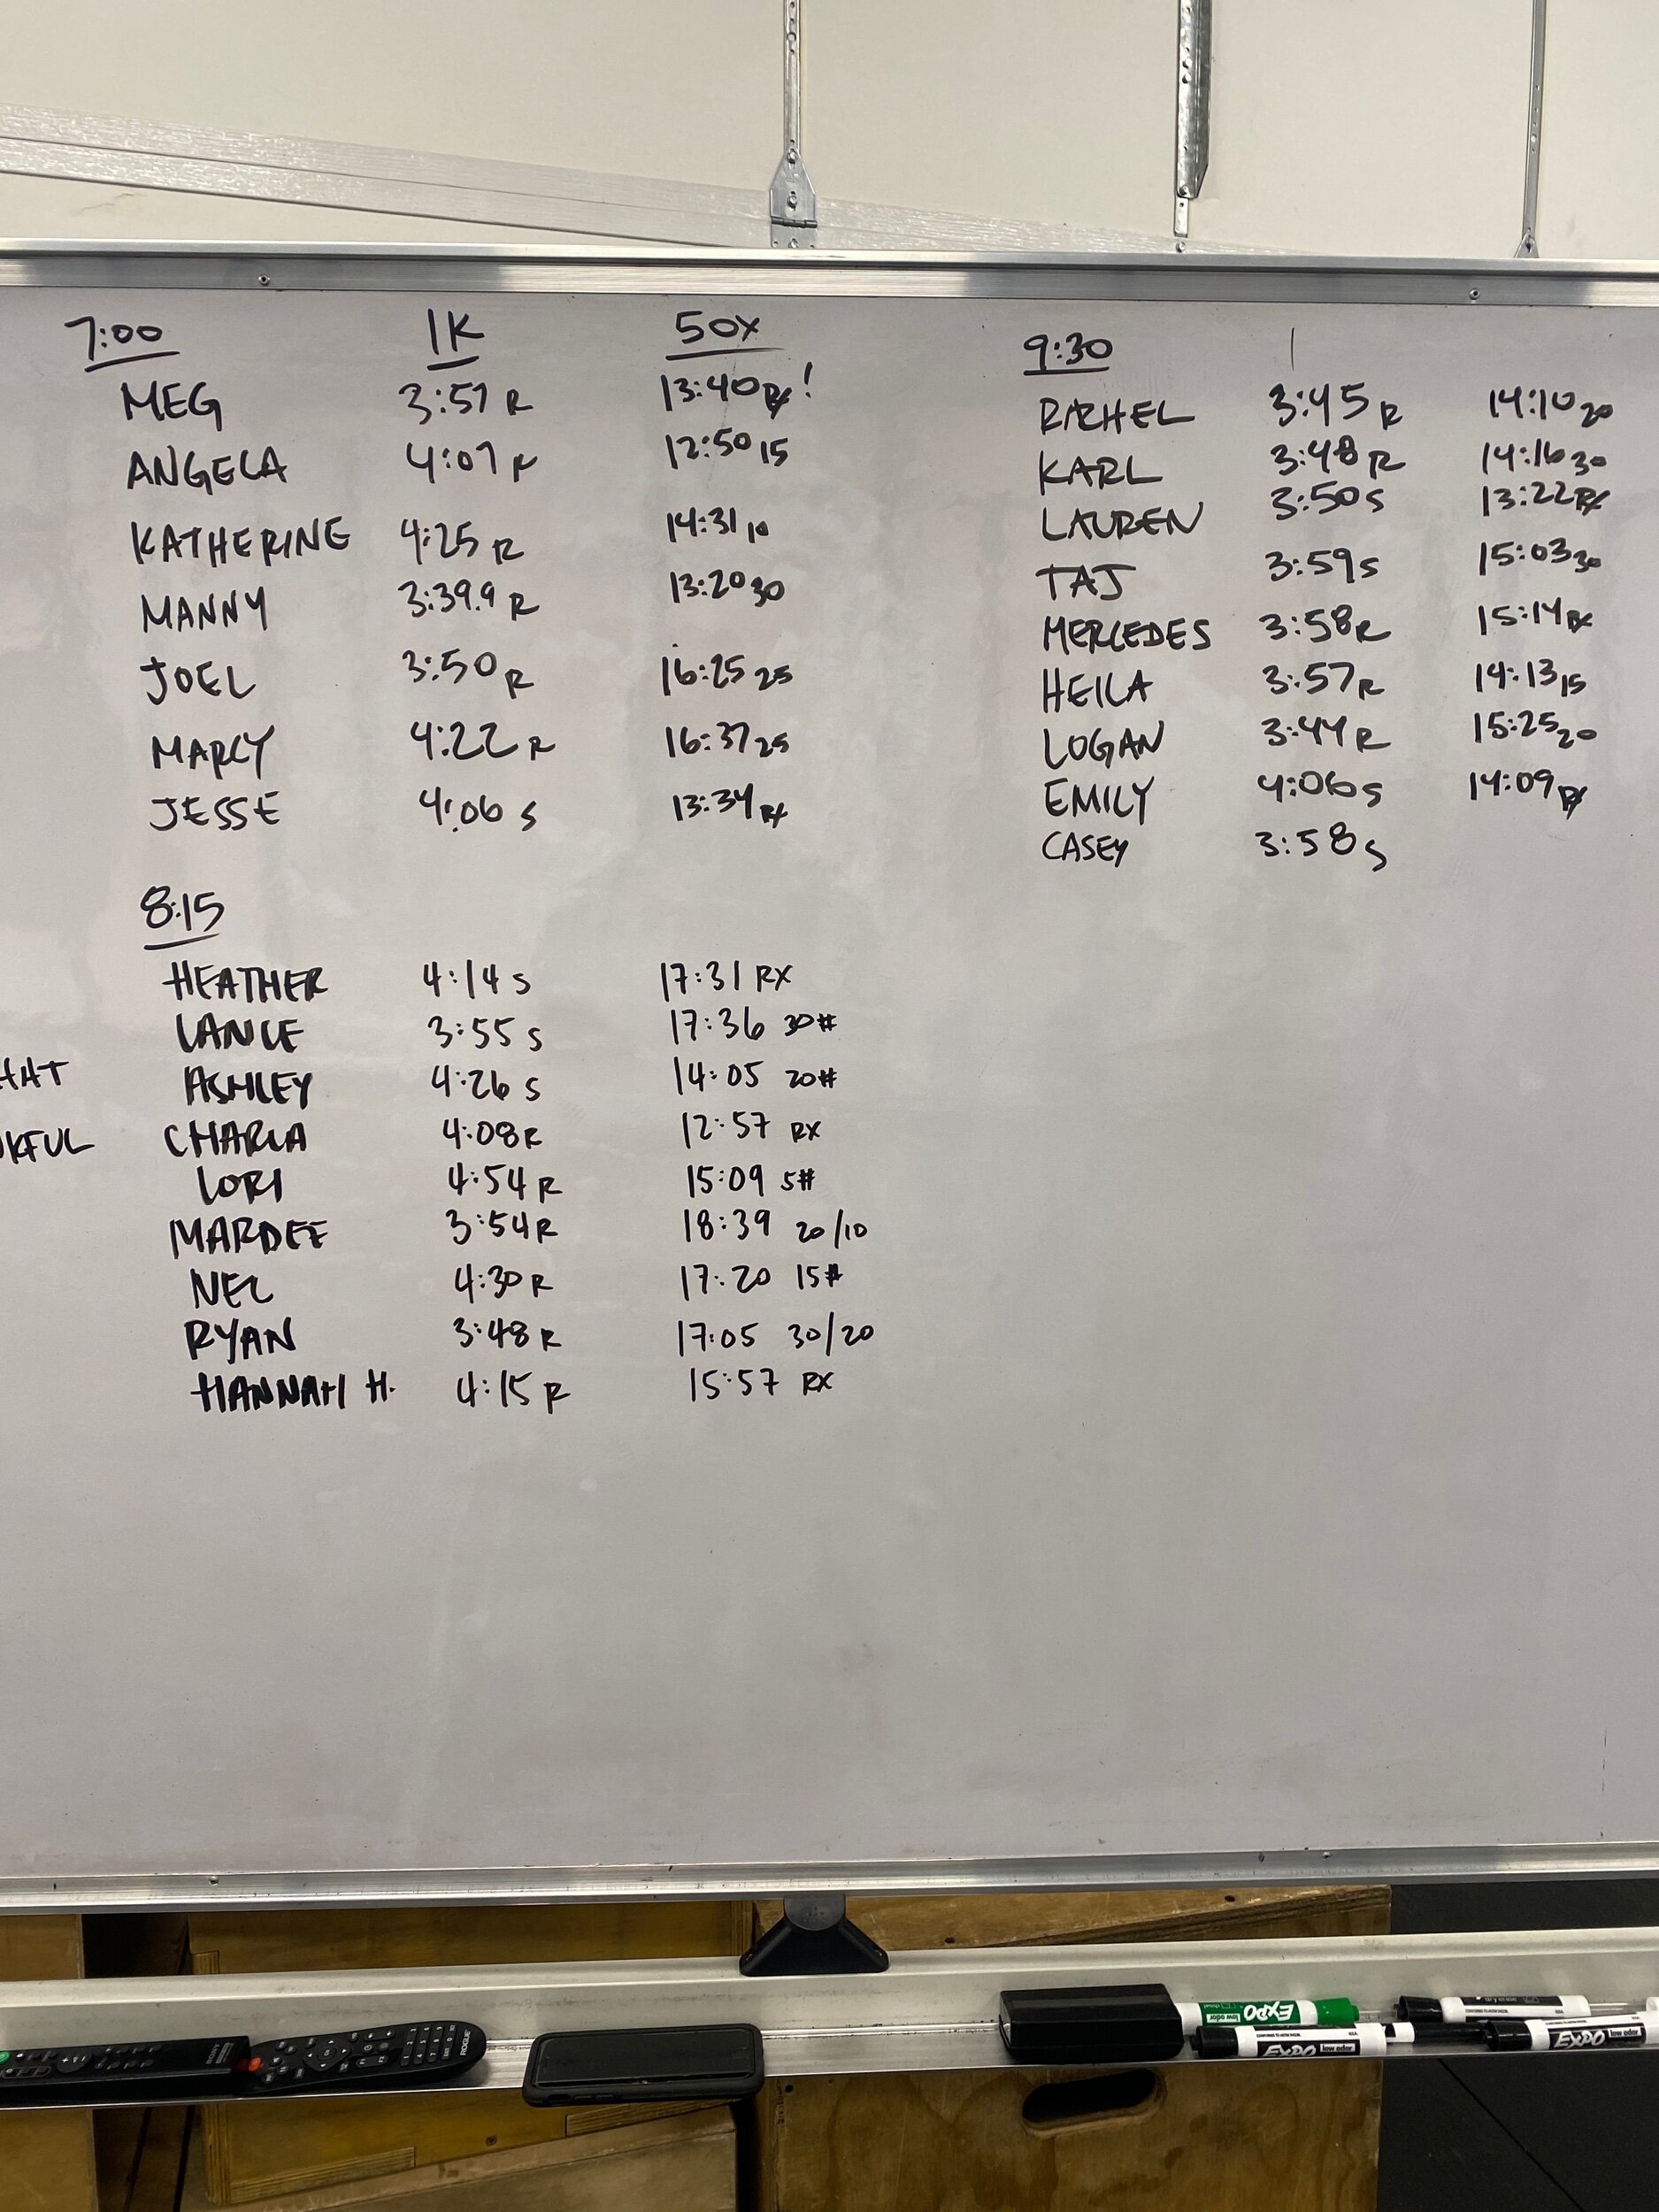 7:00 1K 50X
MEG 3:57 R 13:40 RX!
ANGELA 4:07 R 12:50 15
KATHERINE 4:25 R 14:31 10
MANNY 3:39.9 R 13:20 30
JOEL 3:50 R 16:25 25
MARCY 4:22 R 16:37 25
JESSE 4:06 S 13:34 RX
8:15
HEATHER 4:14 S 17:31 RX
LANCE 3:55 S 17:36 30#
HAT
ASHLEY 4:26 S 14:05 20#
KFUL
CHARLA 4:08 R 12:57 RX
LORI 4:54 R 15:09 5#
MARDEE 3:54 R 18:39 20/10
NEL 4:30 R 17:20 15#
RYAN 3:48 R 17:05 30/20
HANNAH H. 4:15 R 15:57 RX
9:30
RACHEL 3:45 R 14:10 20
KARL 3:48 R 14:16 30
LAUREN 3:50 S 13:22 RX
TAJ 3:59 S 15:03 30
MERCEDES 3:58 R 15:14 RX
HEILA 3:57 R 14:13 15
LOGAN 3:44 R 15:25 20
EMILY 4:06 S 14:09 RX
CASEY 3:58 S
SONY
ROGUE
EXPO low odor
EXPO low odor
EXPO low odor